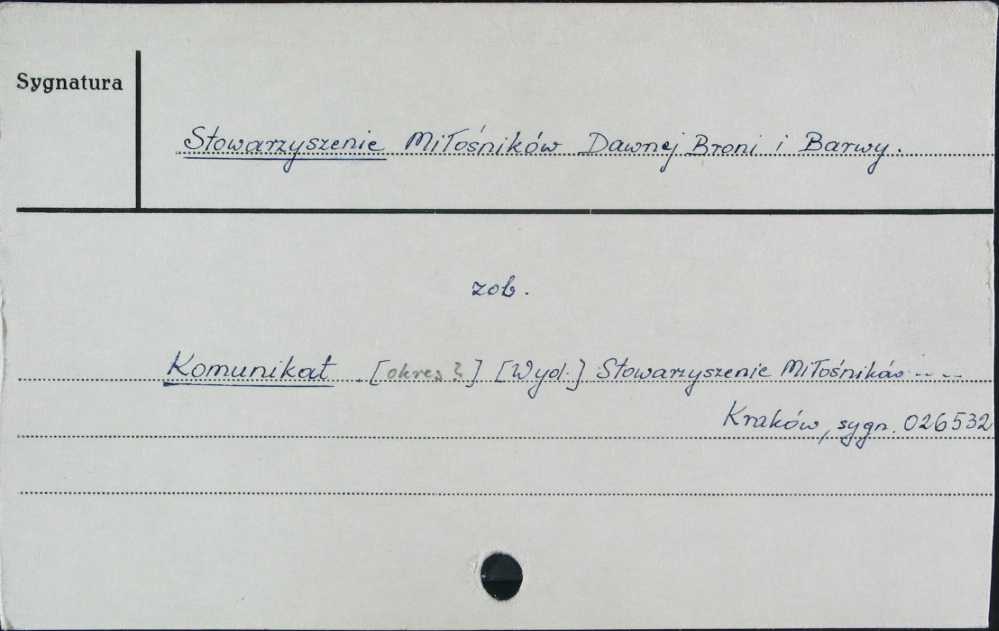 Sygnatura
Stowarzyszenie Miłośników Dawnej Broni i Barwy.
zob.
Komunikat [okres?] [Wyd.] Stowarzyszenie Miłośników ---
Kraków, sygn. 026532